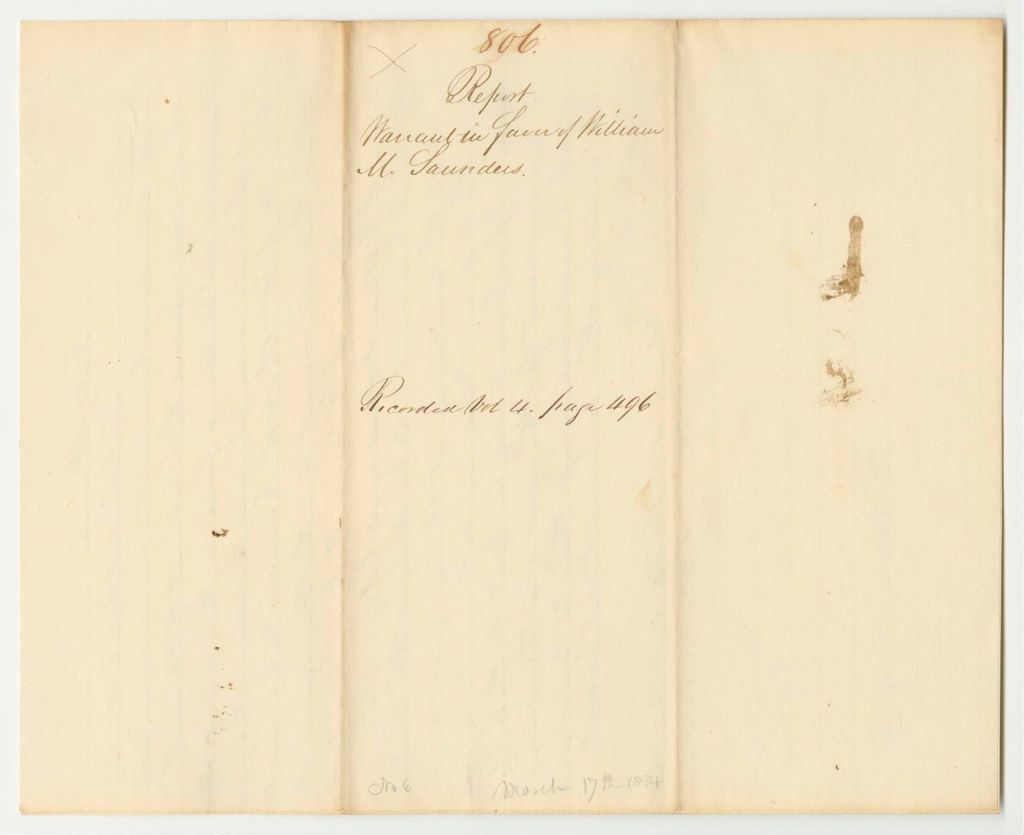 806.
Report
Warrant in favor of William
M. Saunders.
Recorded Vol 4. page 496
No 6 March 17th 1834